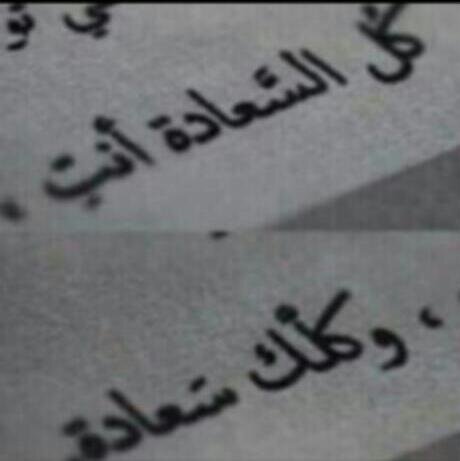 كُل السَّعادة أنتِ ،
، وكلّك سَعادة